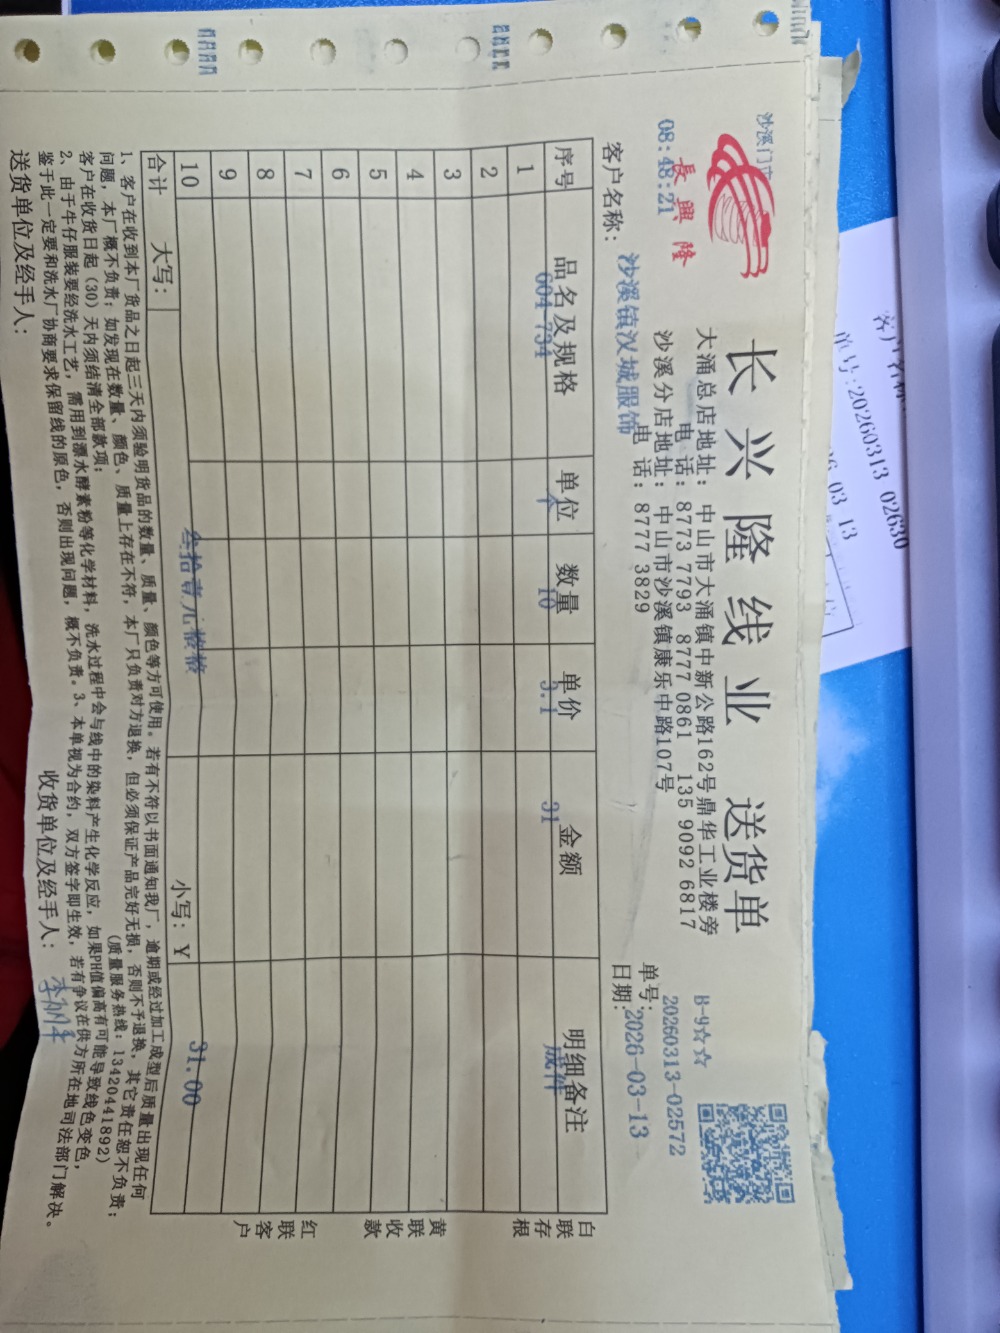 沙溪门
08:48:21
長興隆
长兴隆线业 送货单
大涌总店地址：中山市大涌镇中新公路162号鼎华工业楼旁
电话：8773 7793 8777 0861 135 9092 6817
沙溪分店地址：中山市沙溪镇康乐中路107号
电话：8777 3829
B-9☆☆
单号：20260313-02572
日期：2026-03-13
客户名称：沙溪镇汉城服饰
序号 品名及规格 单位 数量 单价 金额 明细备注
1 604-734 个 10 3.1 31 成件
2
3
4
5
6
7
8
9
10
合计 大写：叁拾壹元整 小写：Y 31.00
白联存根
黄联收款
红联客户
1、客户在收到本厂货品之日起三天内须验明货品的数量、质量、颜色等方可使用。若有不符以书面通知我厂，逾期或经过加工成型后质量出现任何
问题，本厂概不负责；如发现在数量、颜色、质量上存在不符，本厂只负责对方退换，但必须保证产品完好无损，否则不予退换，其它责任恕不负责；
客户在收货日起（30）天内须结清全部款项； （质量服务热线：13420441892）
2、由于牛仔服装要经洗水工艺，需用到漂水酵素粉等化学材料，洗水过程中会与线中的染料产生化学反应，如果PH值偏高有可能导致线色变色，
鉴于此一定要和洗水厂协商要求保留线的原色，否则出现问题，概不负责。3、本单视为合约，双方签字即生效，若有争议在供方所在地司法部门解决。
送货单位及经手人： 收货单位及经手人：
客户名称
单号:20260313 02630
03 13